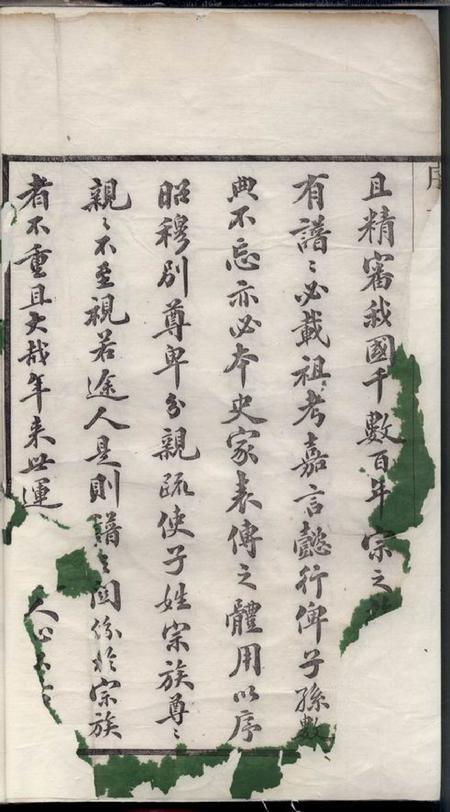 且精審我國千數百年宗之
有譜〻必載祖考嘉言懿行俾子孫數
典不忘亦必本史家表傳之體用以序
昭穆別尊卑分親疏使子姓宗族尊〻
親〻不至視若途人是則譜之関係於宗族
者不重且大哉年來世運 人心